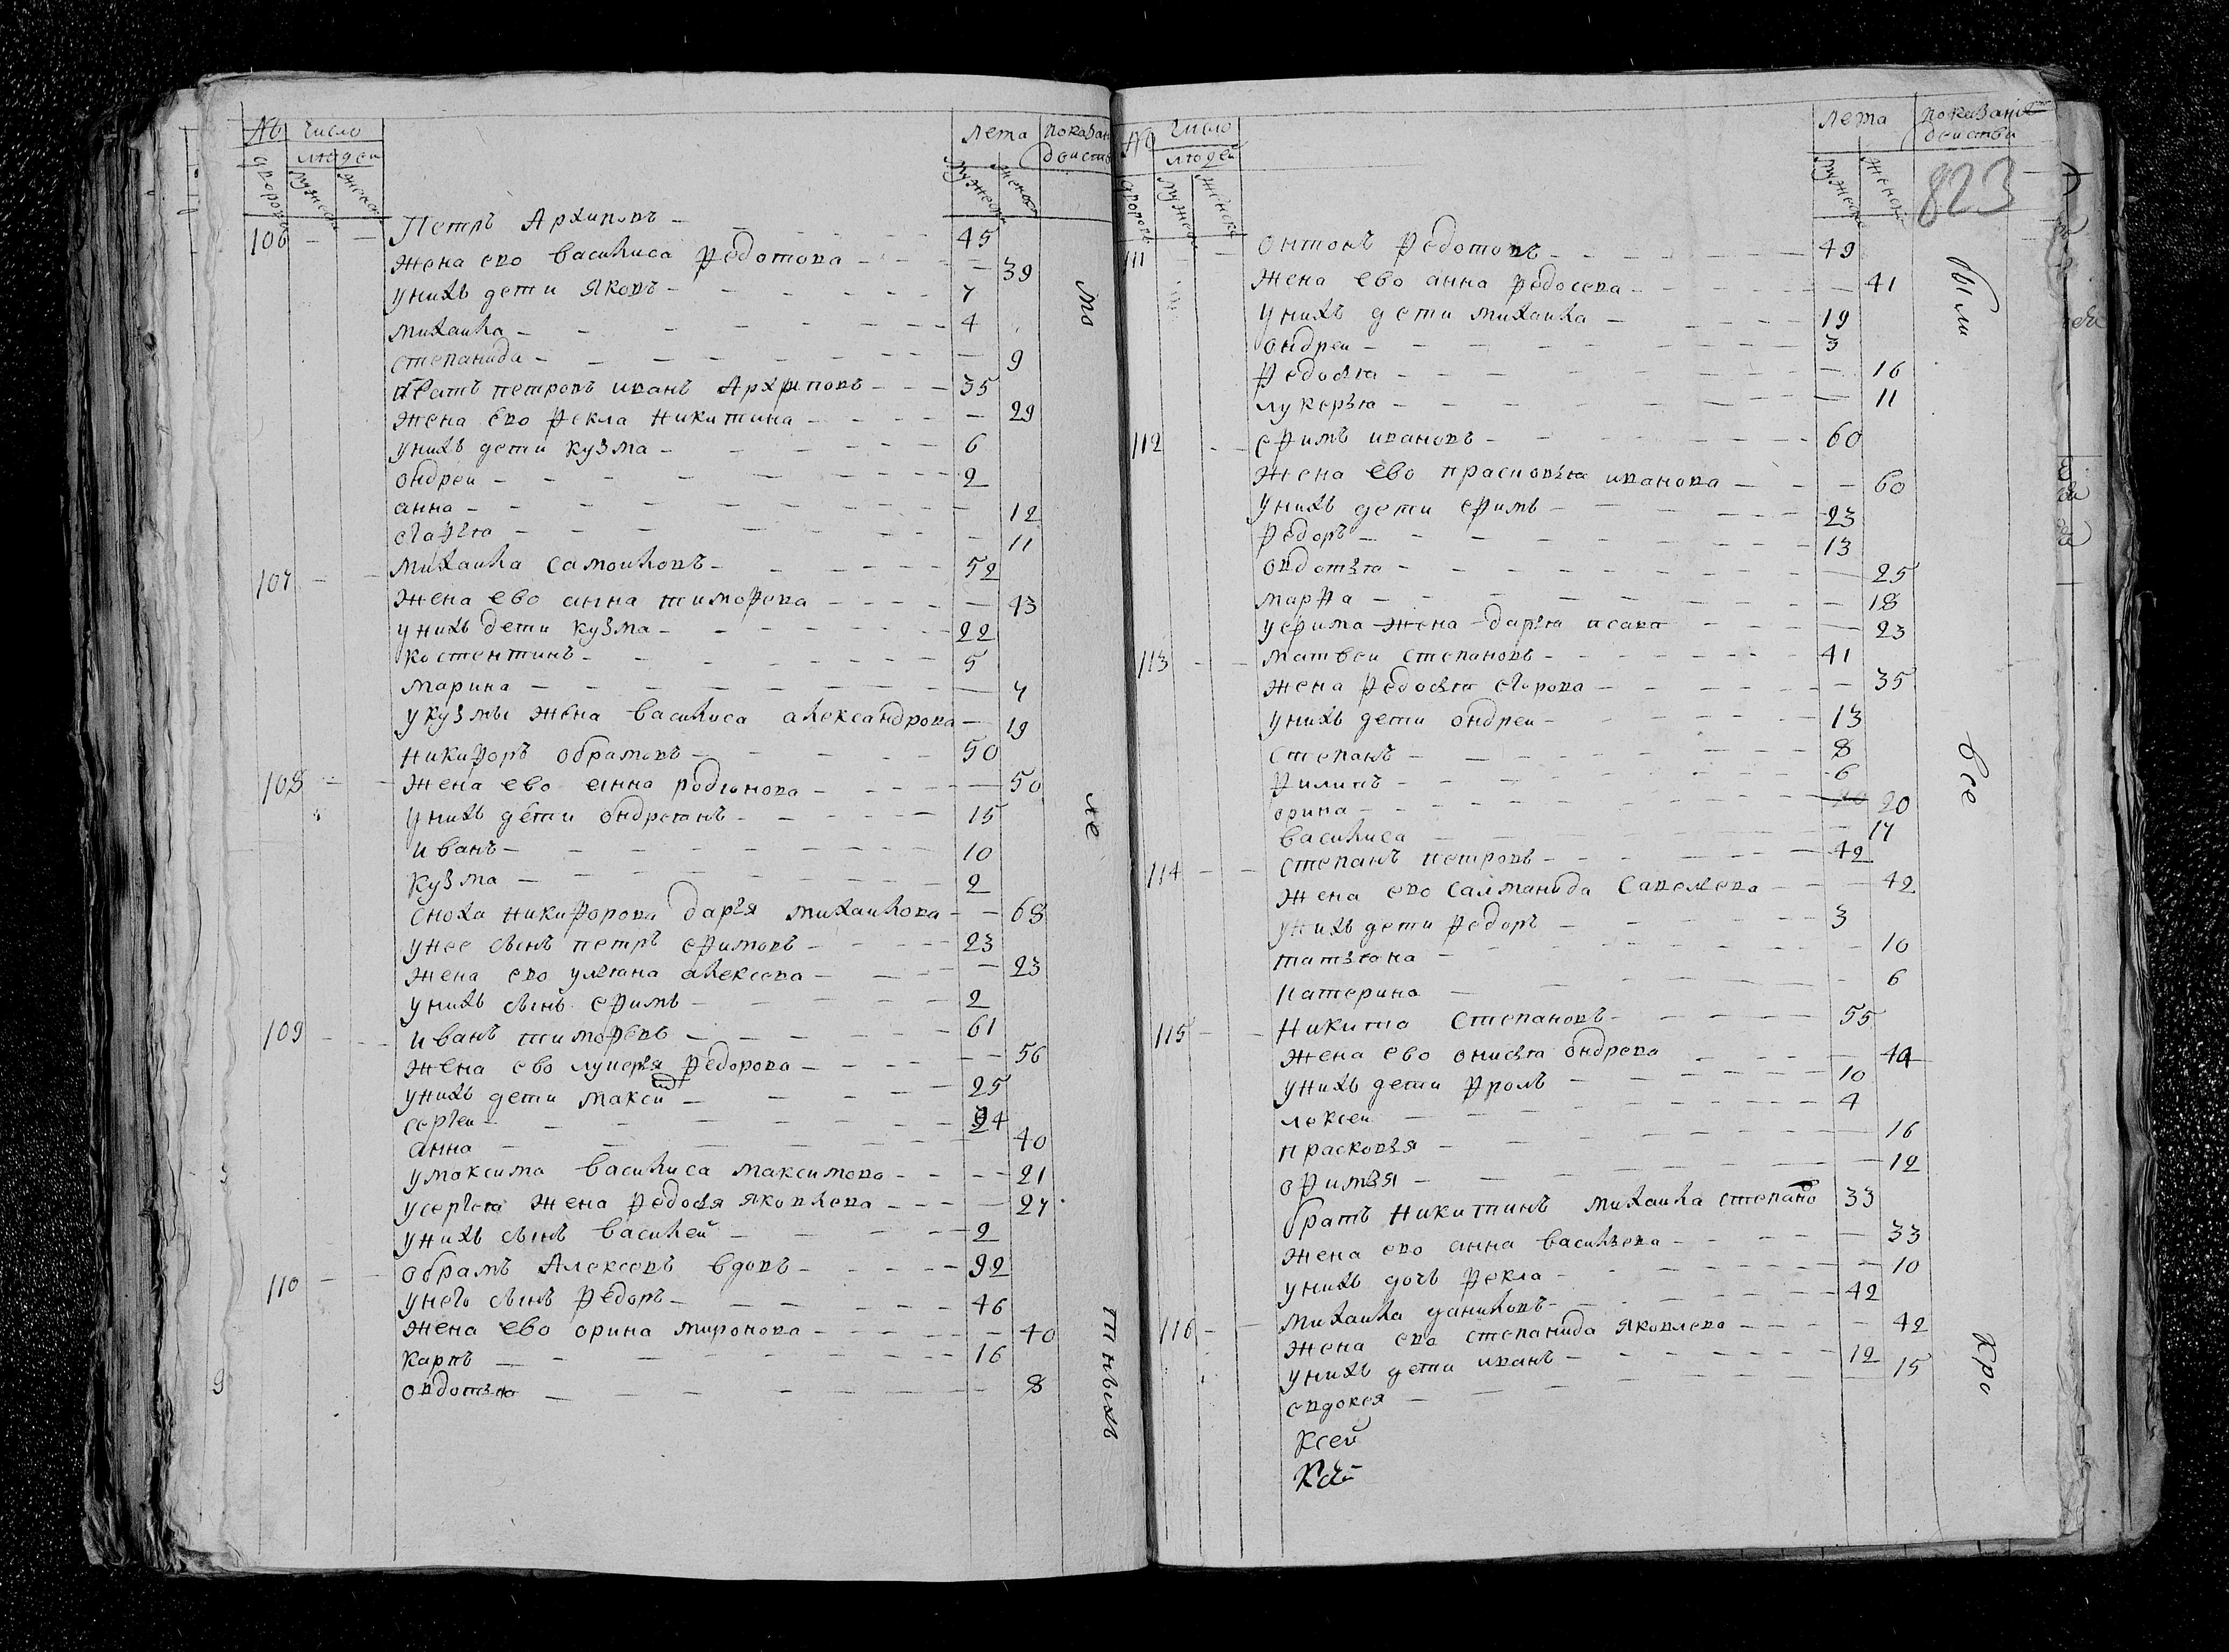 № число лета показан
людей действ
дворовъ мужеск женск мужеска женска
106 Петръ Архиповъ 45
жена ево василиса федотова 39
унихъ дети яковъ 7
михаила 4
степанида 9
братъ петровъ иванъ Архиповъ 35
жена ево фекла никитина 29
унихъ дети кузма 6
ондреи 2
анна 12
агафья 11
107 михаила самоиловъ 52
жена ево анна тимофева 43
унихъ дети кузма 22
костентинъ 5
марина 7
укузмы жена василиса александрова 19
108 никифоръ обрамовъ 50
жена ево анна родионова 50
унихъ дети ондреянъ 15
иванъ 10
кузма 2
сноха никифорова дарья михаилова 68
унее сынъ петръ ефимовъ 23
жена ево ульяна алексева 23
унихъ сынъ ефимъ 2
109 иванъ тимофевъ 61
жена ево лукерья федорова 56
унихъ дети макси 25
сергеи 24
анна 40
умаксима василиса максимова 21
усергея жена федосья яковлева 27
унихъ сынъ василей 2
110 обрамъ Алексевъ вдовъ 92
унего сынъ федоръ 46
жена ево орина миронова 40
карпъ 16
овдотья 8
то
не
тнвыхъ
№ число лета показание
людей действа
дворовъ мужеск женска мужеска женска
823
111 онтонъ федотовъ 49
жена ево анна федосева 41
унихъ дети михаила 19
ондреи 3
федосья 16
лукерья 11
112 ефимъ ивановъ 60
жена ево прасковья иванова 60
унихъ дети ефимъ 23
федоръ 13
овдотья 25
марфа 18
уефима жена дарья исава 23
113 матвеи степановъ 41
жена федосья егорова 35
унихъ дети ондреи 13
степанъ 8
филипъ 6
орина 20
василиса 17
114 степанъ петровъ 42
жена ево салманида савелева 42
унихъ дети федоръ 3
татьяна 10
катерина 6
115 никита степановъ 55
жена ево онисья ондрева 44
унихъ дети фролъ 10
лексеи 4
прасковья 16
офимья 12
братъ никитинъ михаила степано 33
жена ево анна васильева 33
унихъ дочь фекла 10
116 михаила даниловъ 42
жена ево степанида яковлева 42
унихъ дети иванъ 12
евдокея 15
ксей
были
все
кро